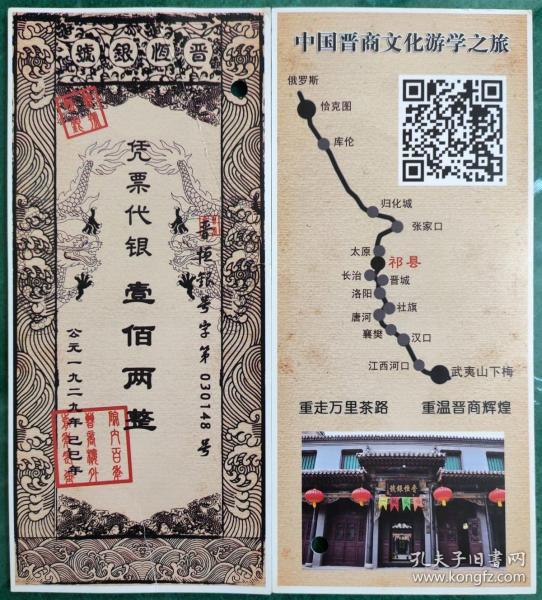 晋恆銀號
凭票代银壹佰两整
晋恒银号字第030148号
公元一九二九年己巳年
中国晋商文化游学之旅
俄罗斯
恰克图
库伦
归化城
张家口
太原
祁县
长治
晋城
洛阳
社旗
唐河
襄樊
汉口
江西河口
武夷山下梅
重走万里茶路
重温晋商辉煌
孔夫子旧书网
www.kongfz.com